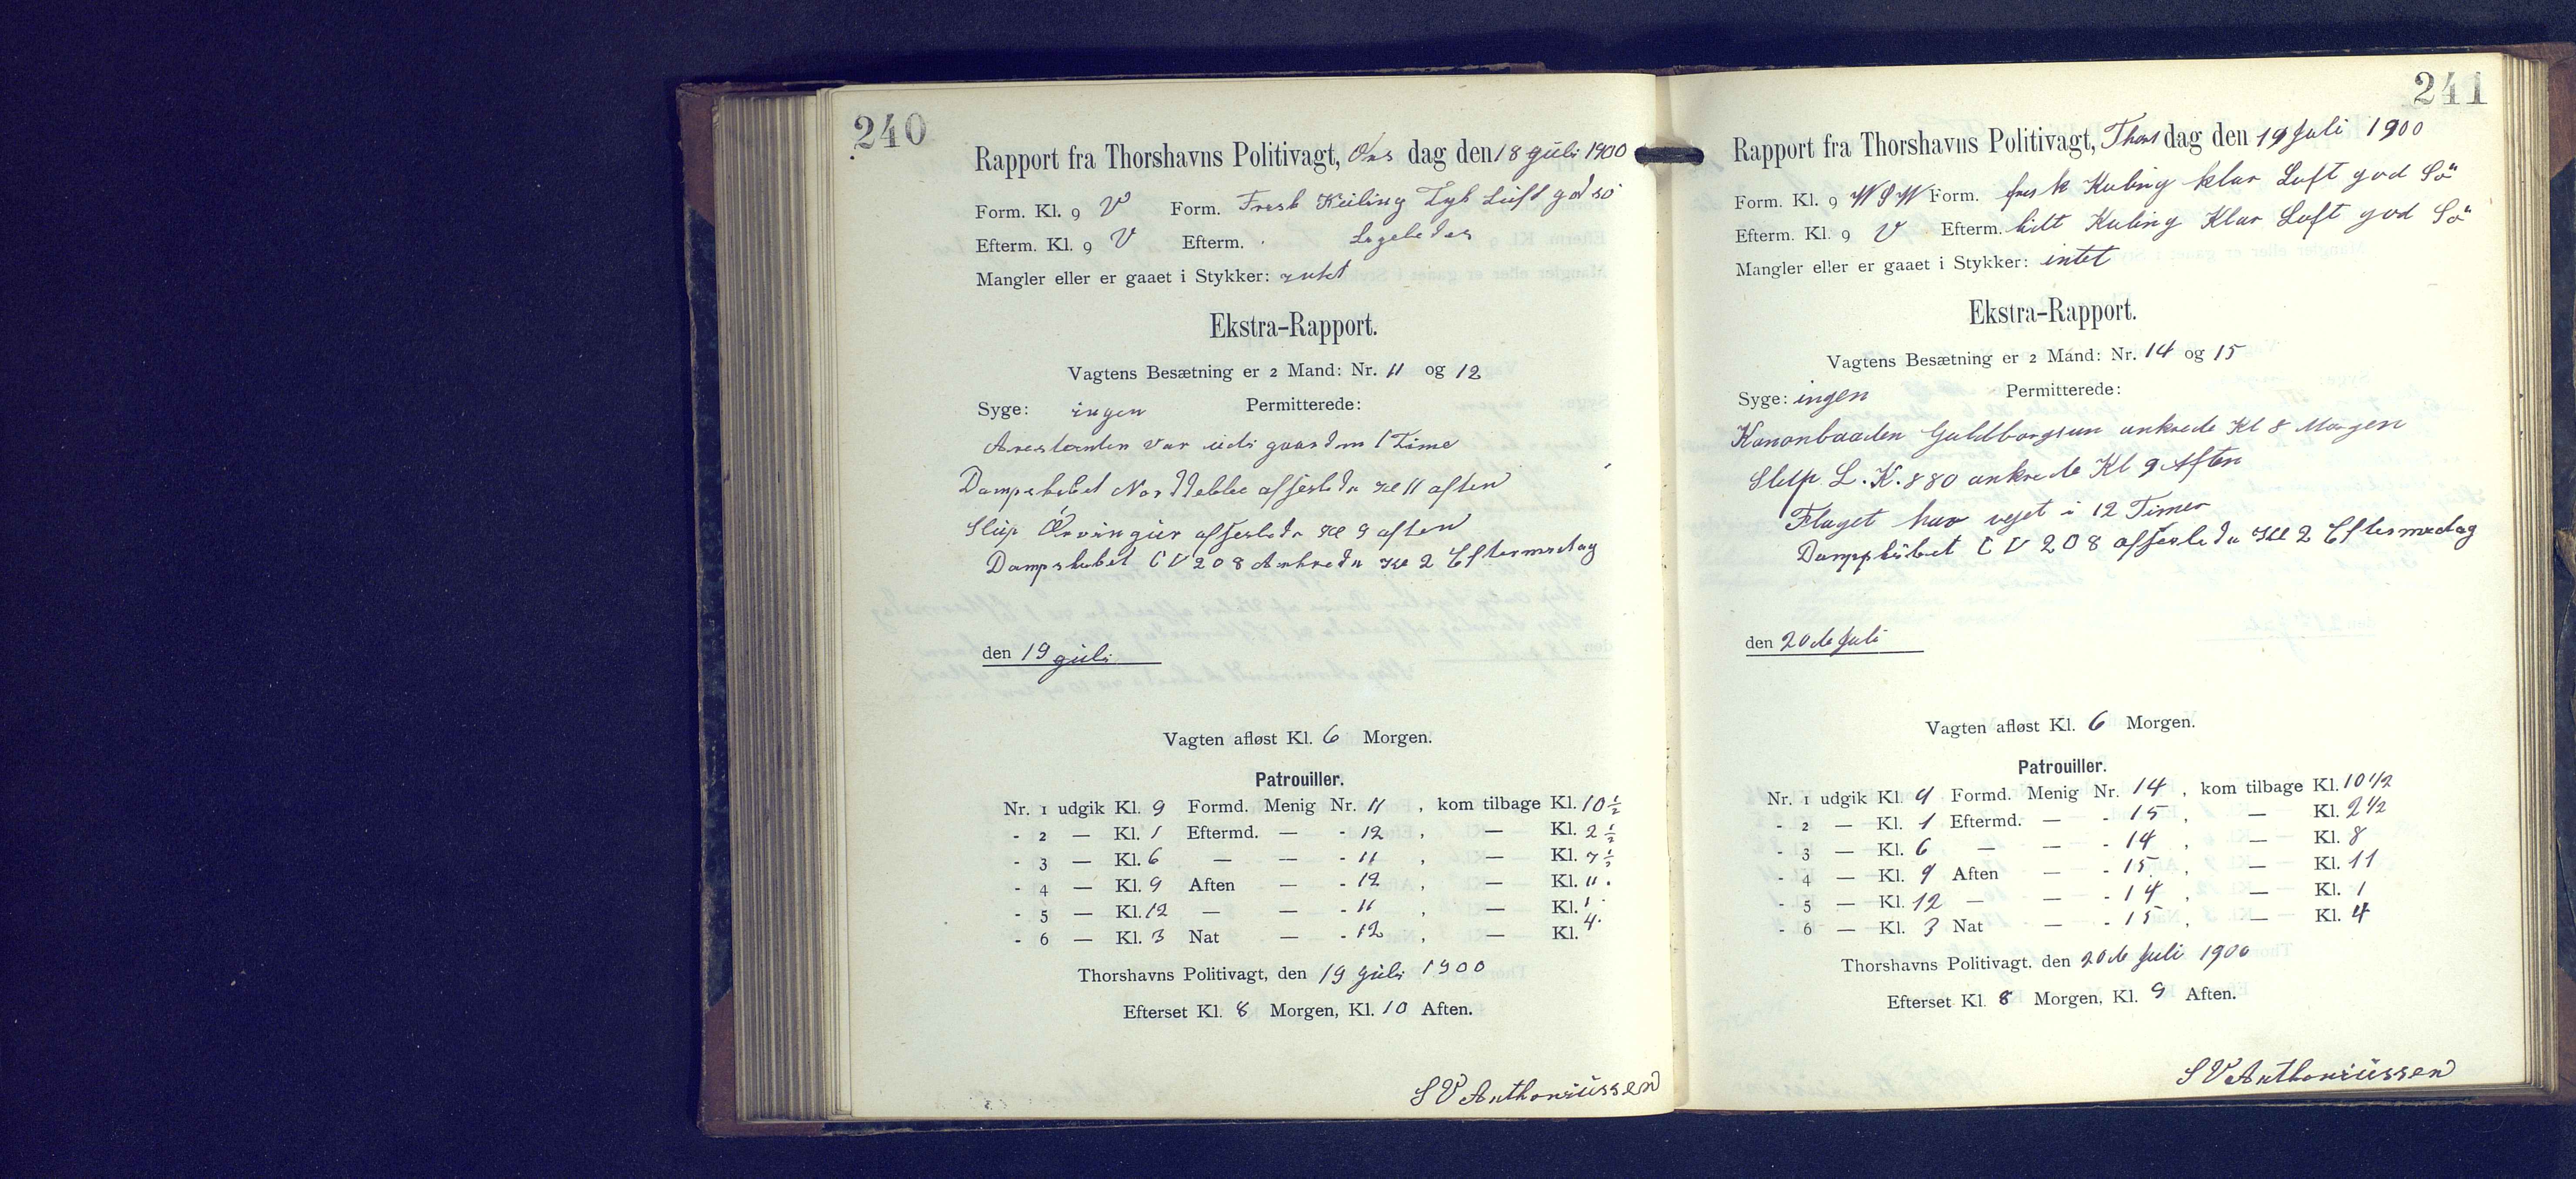 240
Rapport fra Thorshavns Politivagt, Ons dag den 18 Juli 1900
Form. Kl. 9 V Form. Fresk Kuling Tyk Luft god sö
Efterm. Kl. 9 V Efterm. Ligeledes
Mangler eller er gaaet i Stykker: intet
Ekstra-Rapport.
Vagtens Besætning er 2 Mand: Nr. 11 og 12
Syge: ingen Permitterede:
Arestanten var udi gaarden 1 Time
Dampskibet afseslede Kl 11 aften
Slup Örvingur afseslede Kl 9 aften
Dampskibet C V 208 Ankrede Kl 2 Eftermedag
den 19 Juli
Vagten afløst Kl. 6 Morgen.
Patrouiller.
Nr. 1 udgik Kl. 9 Formd. Menig Nr. 11 , kom tilbage Kl. 10 1/2
- 2 — Kl. 1 Eftermd. — - 12 , — Kl. 2 1/2
- 3 — Kl. 6 — — - 11 , — Kl. 7 1/2
- 4 — Kl. 9 Aften — - 12 , — Kl. 11.
- 5 — Kl. 12 — — - 11 , — Kl. 1.
- 6 — Kl. 3 Nat — - 12 , — Kl. 4.
Thorshavns Politivagt, den 19 Juli 1900
Efterset Kl. 8 Morgen, Kl. 10 Aften.
S V Anthoniussen
241
Rapport fra Thorshavns Politivagt, Thors dag den 19 Juli 1900
Form. Kl. 9 W S W Form. fresk Kuling klar Luft god Sö
Efterm. Kl. 9 V Efterm. lidt Kuling Klar Luft god Sö
Mangler eller er gaaet i Stykker: intet
Ekstra-Rapport.
Vagtens Besætning er 2 Mand: Nr. 14 og 15
Syge: ingen Permitterede:
Kanonbaaden Guldborgsun ankrede Kl 8 Morgen
Slup L. K. 880 ankrede Kl 9 Aften
Flaget har vejet i 12 Timer
Dampskibet C V 208 afseslede Kl 2 Eftermedag
den 20de Juli
Vagten afløst Kl. 6 Morgen.
Patrouiller.
Nr. 1 udgik Kl. 9 Formd. Menig Nr. 14 , kom tilbage Kl. 10 1/2
- 2 — Kl. 1 Eftermd. — - 15 , — Kl. 2 1/2
- 3 — Kl. 6 — — - 14 , — Kl. 8
- 4 — Kl. 9 Aften — - 15 , — Kl. 11
- 5 — Kl. 12 — — - 14 , — Kl. 1
- 6 — Kl. 3 Nat — - 15 , — Kl. 4
Thorshavns Politivagt. den 20de Juli 1900
Efterset Kl. 8 Morgen, Kl. 9 Aften.
S V Anthoniussen